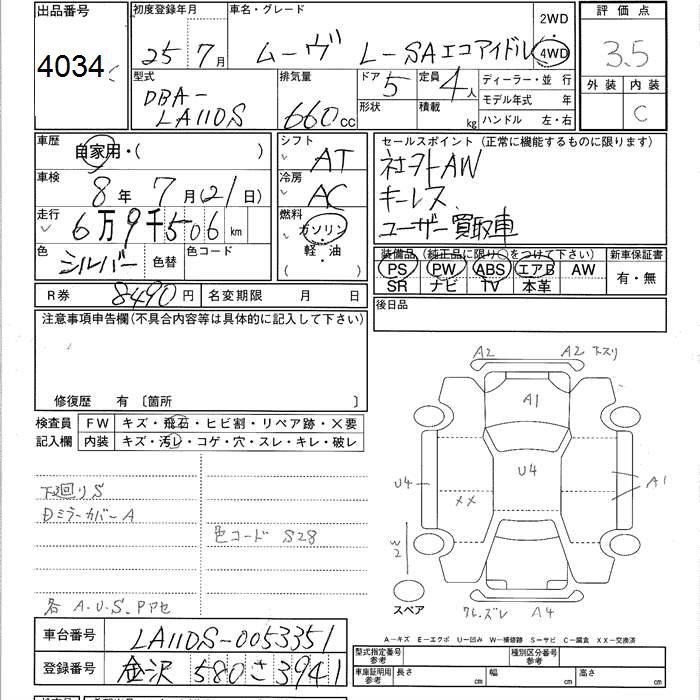 出品番号 初度登録年月 車名・グレード 2WD 評価点
4034 25年7月 ムーヴ L-SAエコアイドル 4WD 3.5
型式 排気量 ドア 5 定員 4人 ディーラー・並行 外装 内装
DBA-LA11DS 660cc 形状 積載 kg モデル年式 年 C
ハンドル 左・右
車歴 自家用・( ) シフト AT セールスポイント(正常に機能するものに限ります)
車検 8年7月(21日) 冷房 AC 社外AW
走行 6万9千506km 燃料 ガソリン・軽・油 ( ) キーレス
色 シルバー 色替 色コード ユーザー買取車
装備品(純正品に限り○をつけて下さい) 新車保証書
PS PW ABS エアB AW 有・無
SR ナビ TV 本革
R券 8490円 名変期限 月 日 後日品
注意事項申告欄(不具合内容等は具体的に記入して下さい)
修復歴 有〔箇所 〕
検査員 FW キズ・飛石・ヒビ割・リペア跡・×要
記入欄 内装 キズ・汚レ・コゲ・穴・スレ・キレ・破レ
A2 A2 下スリ
A1
U4 U4 A1
XX
W2
スペア
A4
下廻りS
DミラーカバーA
色コード S28
各 A.U.S.Pアセ
車台番号 LA11DS-0053351
登録番号 金沢 580 さ 3941
A-キズ E-エクボ U-凹み W-補修跡 S-サビ C-腐食 XX-交換済
型式指定番号 参考 種別区分番号 参考
車庫証明用 参考 長さ cm 幅 cm 高さ cm